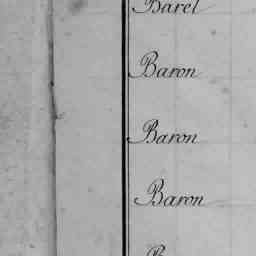 Barel
Baron
Baron
Baron